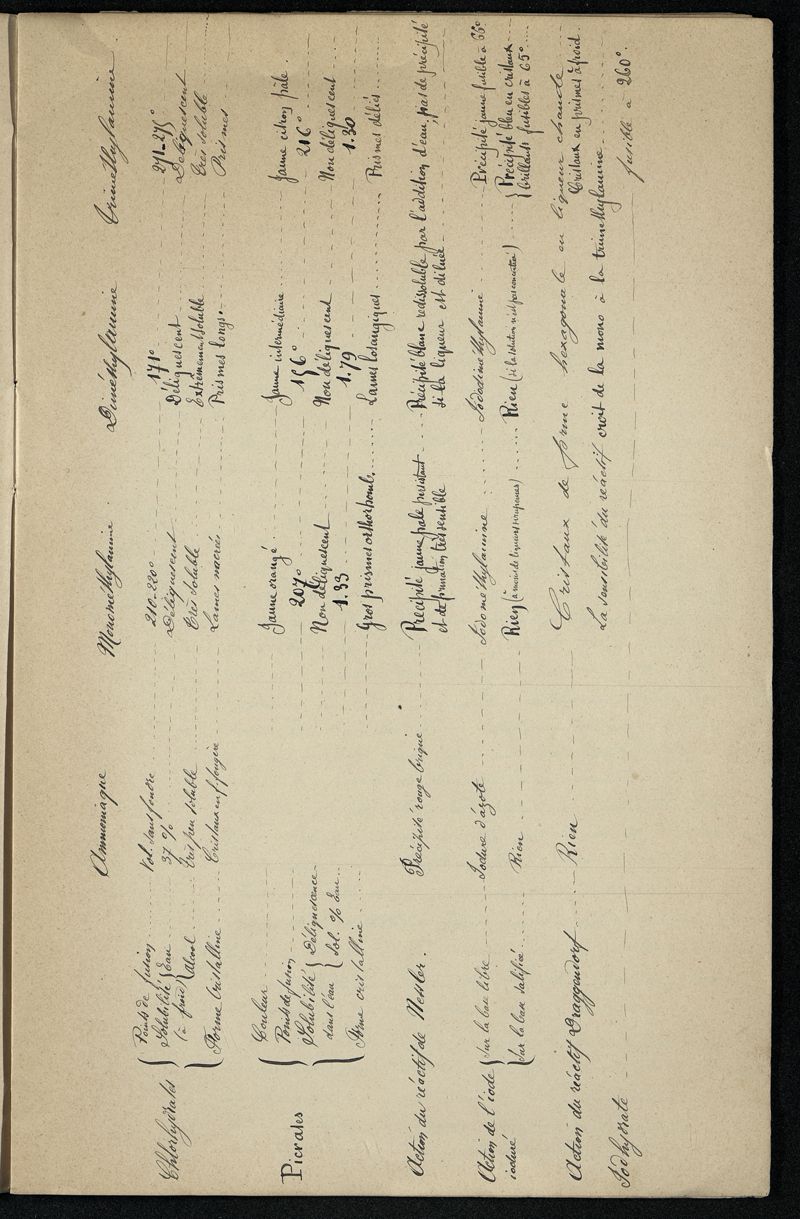 Ammoniaque Monométhylamine Diméthylamine Triméthylamine.
Chlorhydrates { Points de fusion Vol. sans fondre 210-220° 171° 271-275°
Solubilité (à froid) { Eau 37 % Déliquescent Déliquescent Déliquescent
alcool très peu soluble très soluble Extrêmement soluble très soluble
Forme cristalline Cristaux en f. fougère Lames nacrées Prismes longs. Prismes
Picrates { Couleur Jaune orangé Jaune intermédiaire Jaune citron pâle.
Points de fusion 207° 156° 216°
Solubilité dans l'eau { Déliquescence Non déliquescent Non déliquescent Non déliquescent
Sol. % Eau 1.33 1.79 1.30
Forme cristalline Gros prismes orthorhomb. Lames losangiques Prismes déliés
Action du réactif de Nessler. Précipité rouge brique Précipité jaune pale persistant Précipité blanc redissoluble par l'addition d'eau, pas de précipité
et de formation très sensible si la liqueur est diluée
Action de l'iode ioduré { sur la base libre Iodure d'azote Iodométhylamine Iododiméthylamine Précipité jaune fusible à 66°
sur la base salifiée Rien Rien (à moins de liqueurs sirupeuses) Rien (si la solution n'est pas concentrée) { Précipité bleu en cristaux
brillants fusibles à 65°
Action du réactif Draggendorf Rien Cristaux de forme hexagonale en liqueur chaude
Cristaux en prismes à froid
La sensibilité du réactif croit de la mono à la trimethylamine
Iodhydrate fusible à 260°.